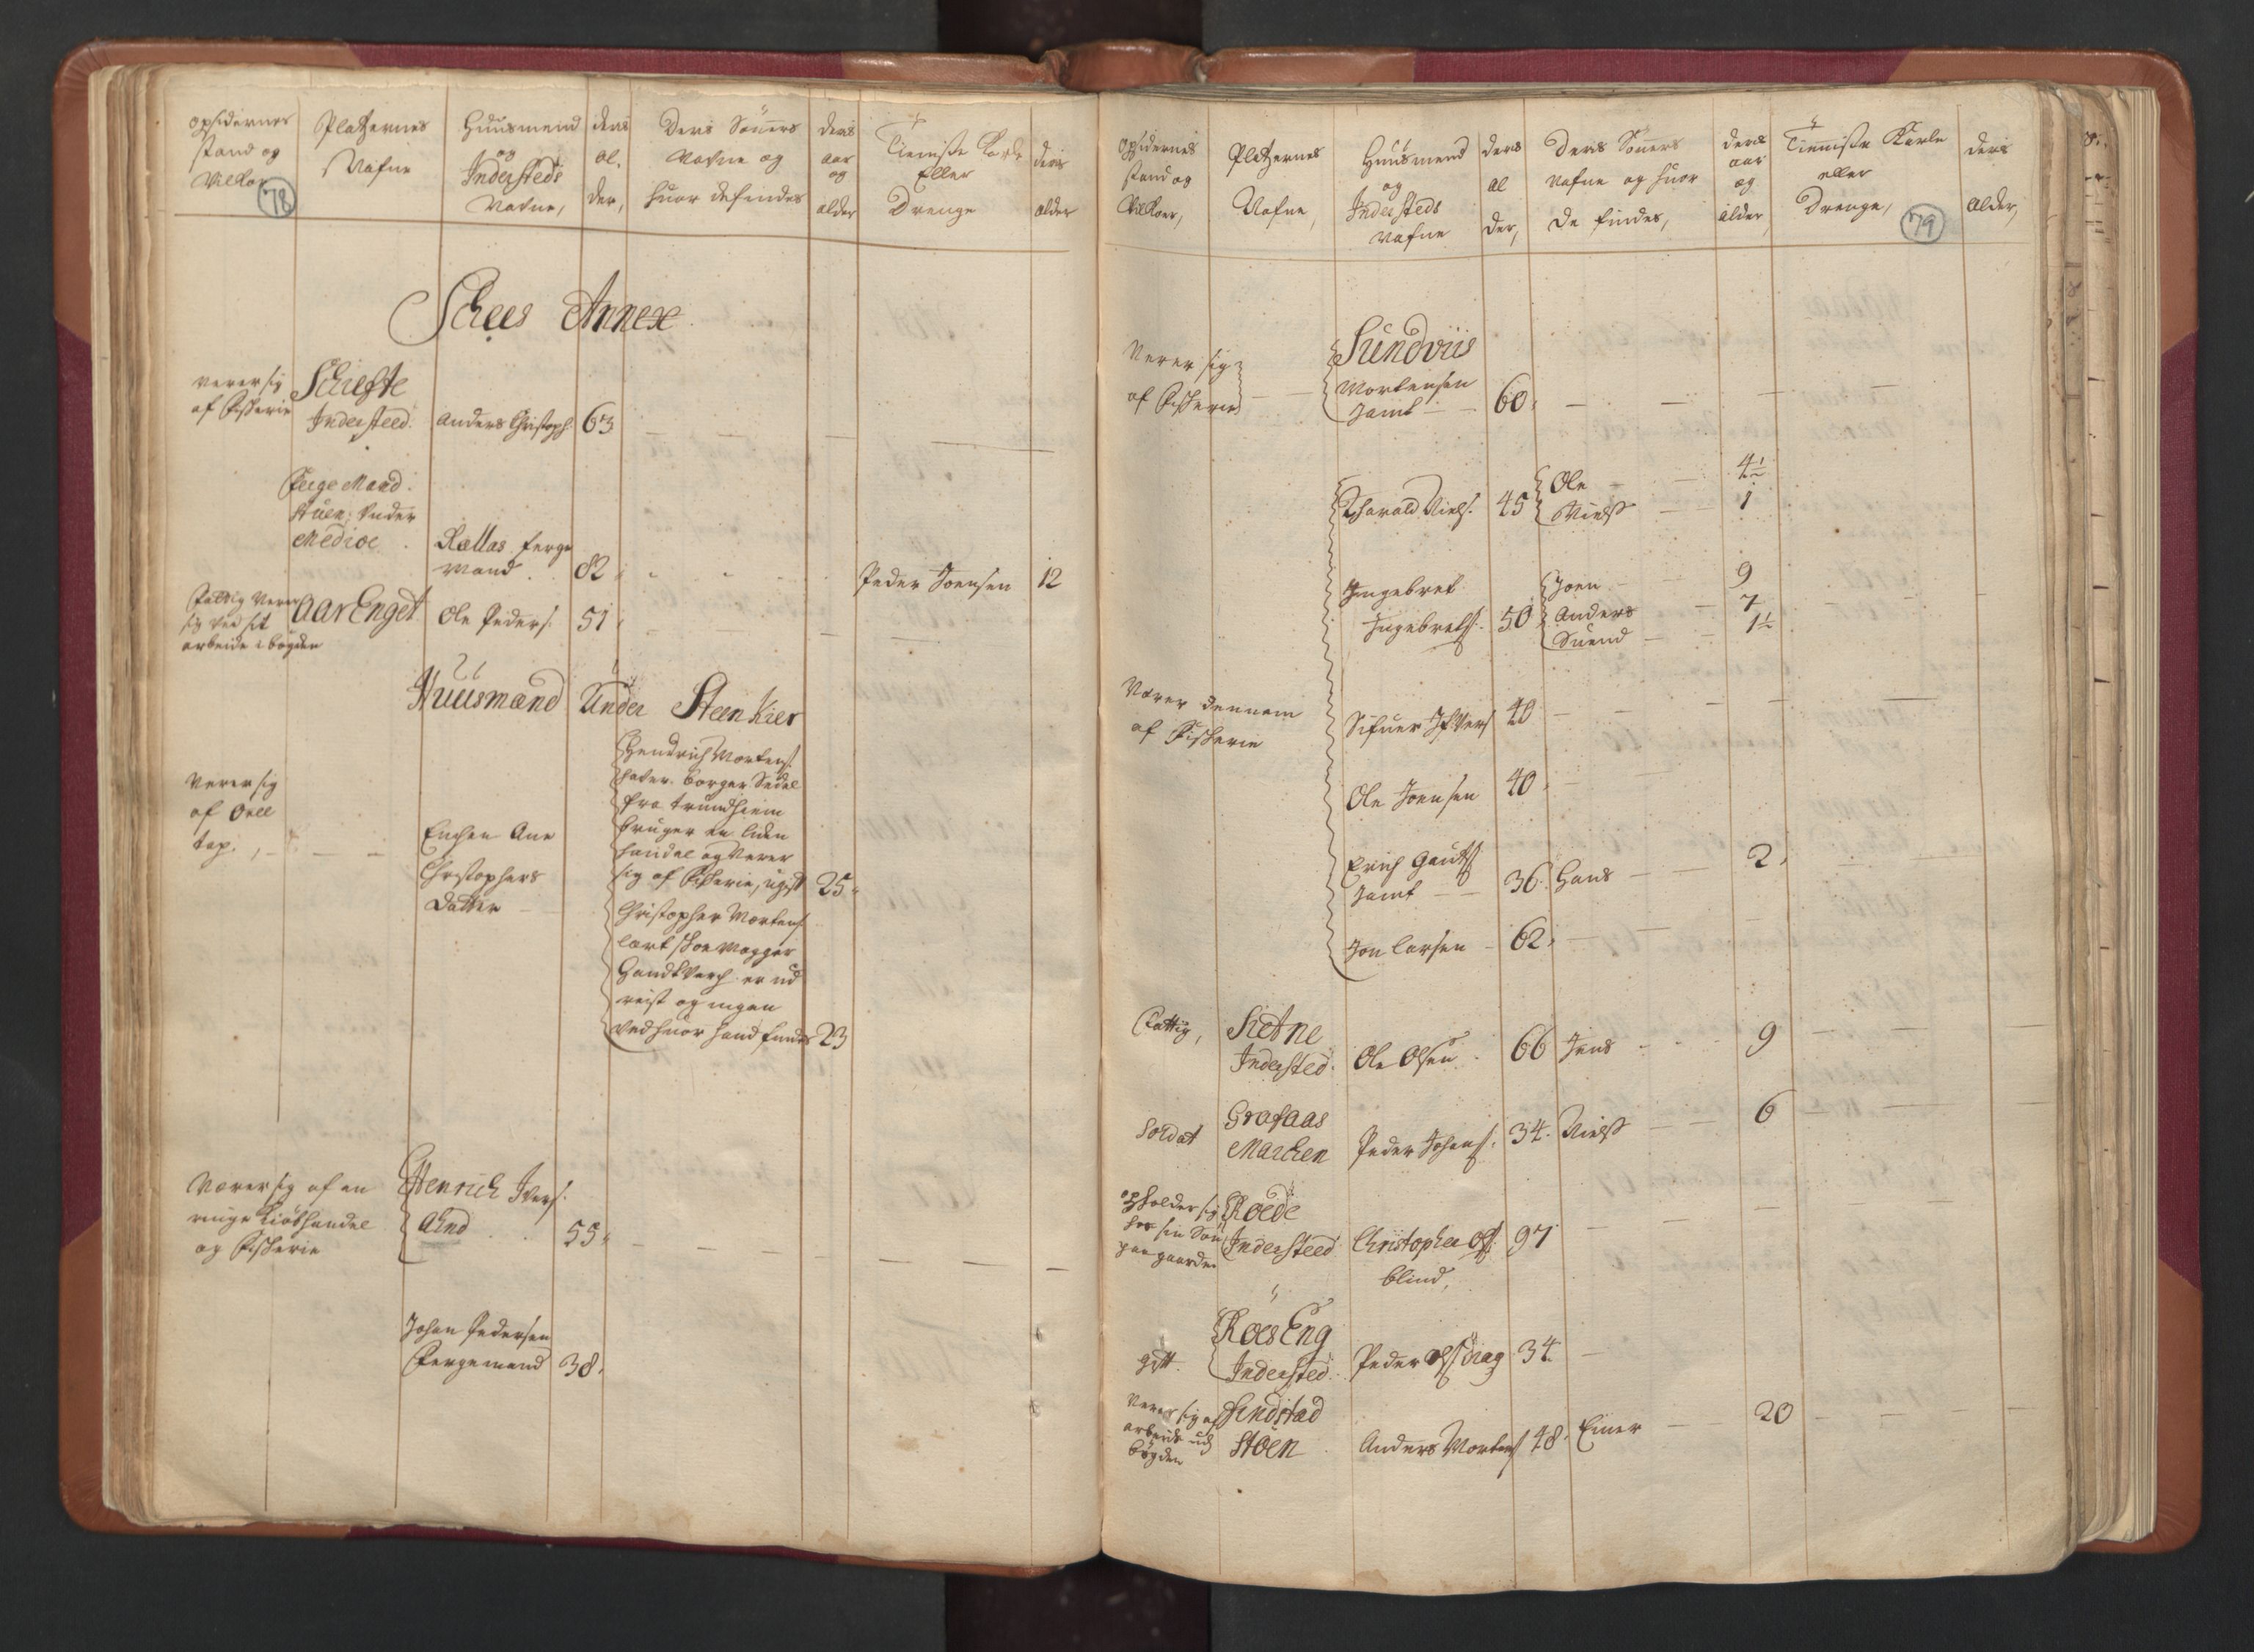 opsidernes stand og Vilkor
78
Platzernes Nafne
Huusmend og Indersteds Nafne,
deris alder,
Deris Sönners Nafne og huor de findes
deris aar og alder
Tienniste Karle Eller Drenge
deris alder
Schees Annexe
nerer sig af Fischerie
Schefte Indersteed.
Anders Christoph:
63
Ferge Mand stuen, Under Medioe
Rallas ferge mand
82
Peder Joensen
12
Fattig Nerer sig ved sit arbeide i bögden
Aar Enget
Ole Peders:
51
Huusmænd Under Steen Kier
nerer sig af Oell tap,
Enchen Ane Christophers Datter
Hendrich Mortens:
haver borger Sedel
fra trundhiem
bruger en liden
handel og Nerer
sig af Fischerie, ugift
25
Christopher Mortens:
lært skoe magger
Handtverch er ud
reist og ingen
ved huor hand findes
23
Nærer sig af en ringe Kiöbhandel og Fischerie
Henrich Ivers: Ahnd
55
Johan Pedersen Fergemand
38,
opsidernes stand og Vilkoer,
Platzernes Nafne,
Huusmend og Indersteds Nafne
deris alder,
Deris Sönners Nafne og huor de findes,
deris aar og alder,
Tienniste Karle eller Drenge,
79
deris alder,
Nerer sig af Fischerie
Sundviis
Mortensen Jamt
60
Harald Niels:
45
Ole
4½
Nielss
1
Ingebret Ingebrets:
50
Joen
9
Anders
7
Suend
1½
Nærer dennem af Fischerie
Sifuer Ifvers:
40
Ole Joensen
40
Erich Gauts: Jamt
36
Hans
2
Jon Larsen
62
Fattig,
Sætne Indersted.
Ole Olsen
66
Jens
9
Soldat
Grafaas Marchen
Peder Johans:
34
Nielss
6
opholder sig hos sin Sön paa gaarden
Roede Indersteed
Christopher Ols: blind,
97
gift.
Röes Eng Indersted.
Peder Ols: drag
34
Nerer sig af arbeide udj bögden
Sindstad stöen
Anders Mortens:
48
Einer
20